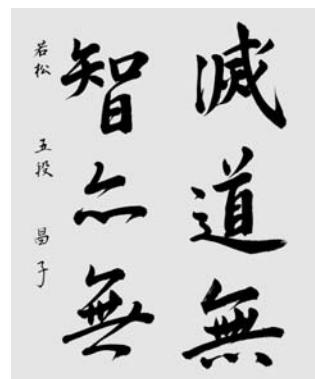 滅道無
智亦無
若松 五段 昌子